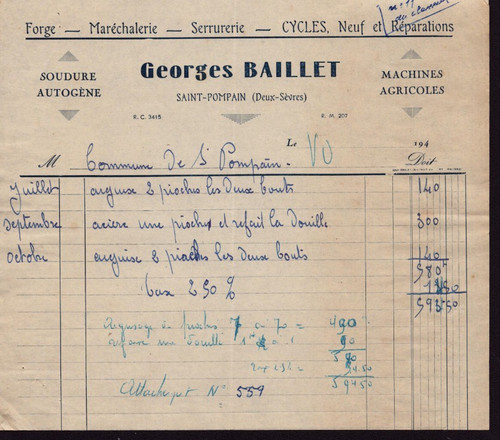 Forge — Maréchalerie — Serrurerie — CYCLES, Neuf et Réparations
SOUDURE AUTOGÈNE
Georges BAILLET
MACHINES AGRICOLES
SAINT-POMPAIN (Deux-Sèvres)
R. C. 3415
R. M. 207
Le VU 194
M Commune De St Pompain. Doit
Juillet aiguisé 2 pioches les deux bouts 140
Septembre aciéré une pioche et refait la douille 300
Octobre aiguisé 2 pioches les deux bouts 140
580
taxe 2 50 %
593 50
pioches 7 à 70 = 490
une douille 90
580
594.50
Attachement N° 559